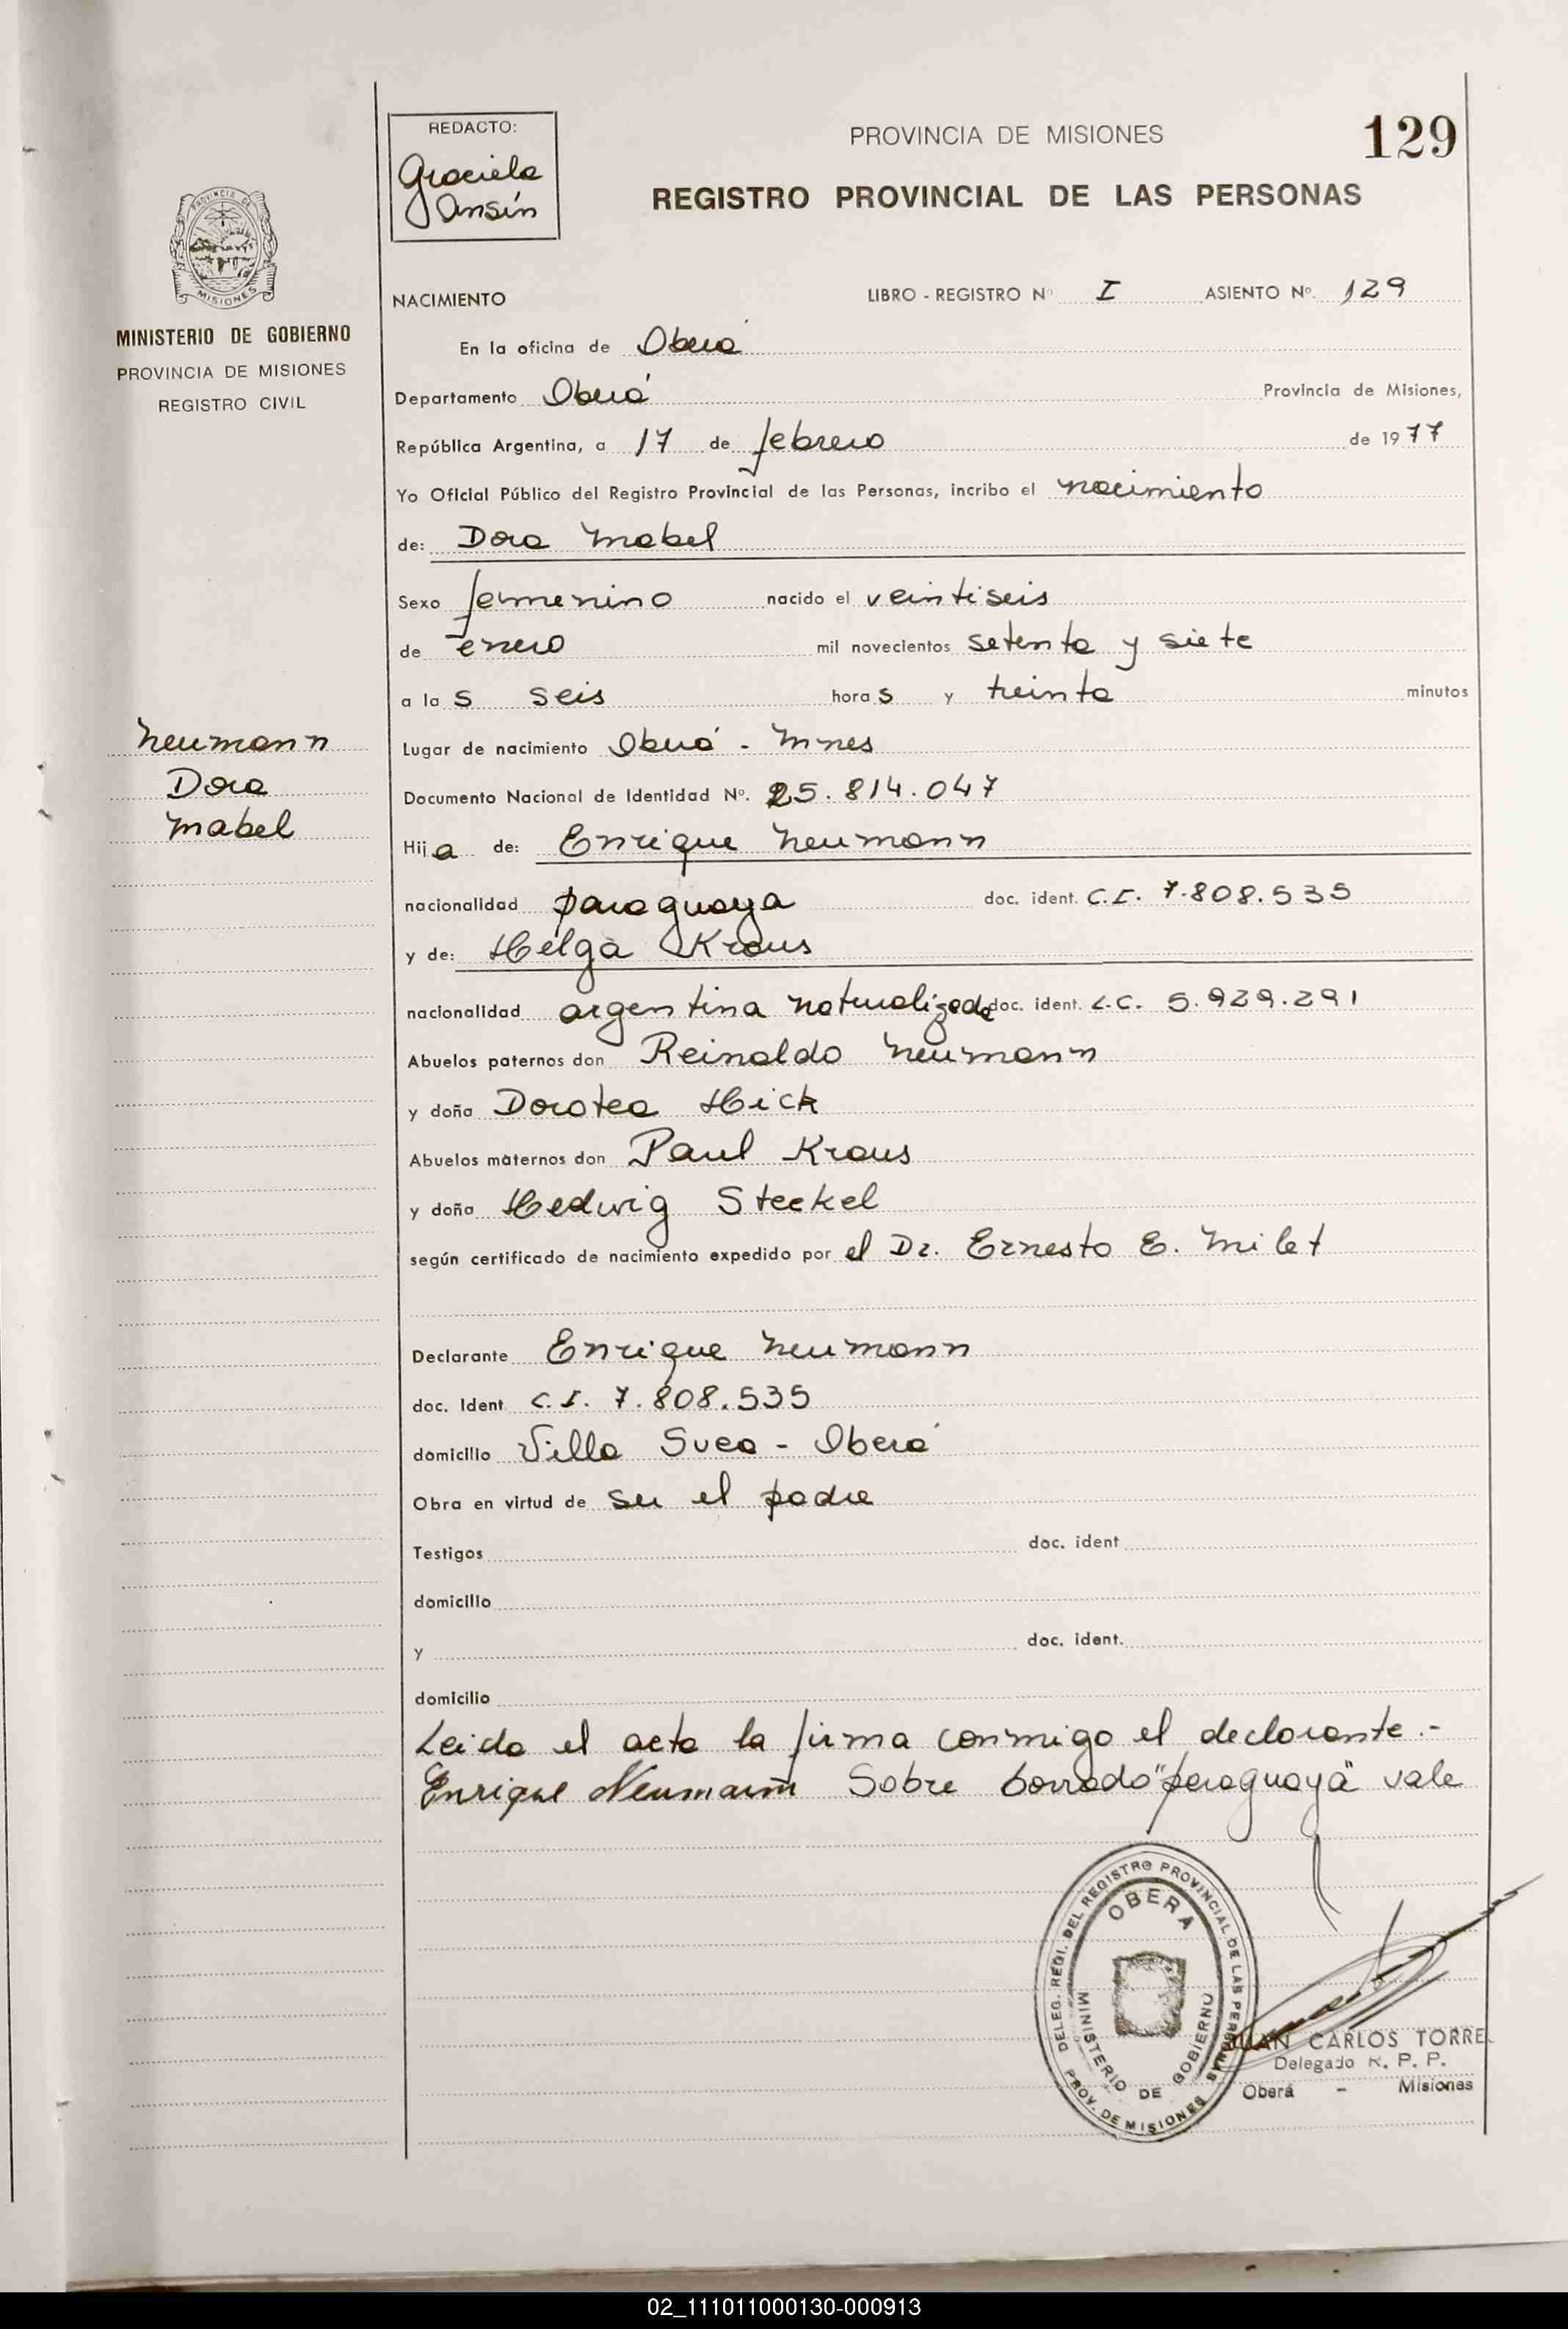 REDACTO:
Graciela
Ansín
PROVINCIA DE MISIONES
129
REGISTRO PROVINCIAL DE LAS PERSONAS
PROVINCIA DE
MISIONES
MINISTERIO DE GOBIERNO
PROVINCIA DE MISIONES
REGISTRO CIVIL
NACIMIENTO LIBRO - REGISTRO Nº I ASIENTO Nº. 129
En la oficina de Oberá
Departamento Oberá Provincia de Misiones,
República Argentina, a 17 de febrero de 1977
Yo Oficial Público del Registro Provincial de las Personas, incribo el nacimiento
de: Dora Mabel
Sexo femenino nacido el veintiseis
de enero mil novecientos setenta y siete
a la s seis hora s y treinta minutos
Neumann
Dora
Mabel
Lugar de nacimiento Oberá - Mnes
Documento Nacional de Identidad Nº. 25.814.047
Hij a de: Enrique Neumann
nacionalidad paraguaya doc. ident. C.I. 7.808.535
y de: Helga Kraus
nacionalidad argentina naturalizada doc. ident. L.C. 5.929.291
Abuelos paternos don Reinaldo Neumann
y doña Dorotea Hick
Abuelos maternos don Paul Kraus
y doña Hedwig Steckel
según certificado de nacimiento expedido por el Dr. Ernesto E. Milet
Declarante Enrique Neumann
doc. Ident C.I. 7.808.535
domicilio Villa Svea - Oberá
Obra en virtud de ser el padre
Testigos doc. ident
domicilio
y doc. ident.
domicilio
Leida el acta la firma conmigo el declarante.-
Enrique Neumann Sobre borrado "paraguaya" vale
DELEG. REGI. DEL REGISTRO PROVINCIAL DE LAS PERSONAS
OBERA
MINISTERIO DE GOBIERNO
PROV. DE MISIONES
JUAN CARLOS TORRE
Delegado R. P. P.
Oberá - Misiones
02_111011000130-000913